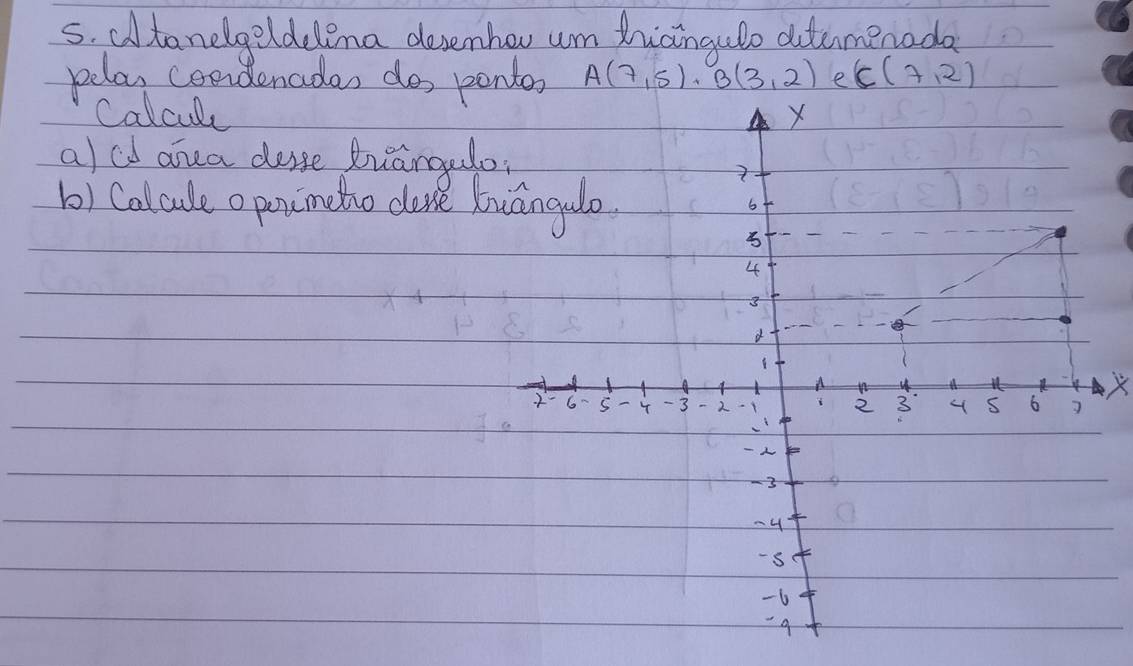 5. Atanelgildelina desenhou um triângulo determinado
pelas coordenadas dos pontos A(7,5). B(3,2) e C(7,2)
Calcule
a) A área desse triângulo;
b) Calcule o perímetro desse triângulo.
X
7
6
5
4
3
2
1
7-6-5-4-3-2-1 1 2 3 4 5 6 7 X
-1
-2
-3
-4
-5
-6